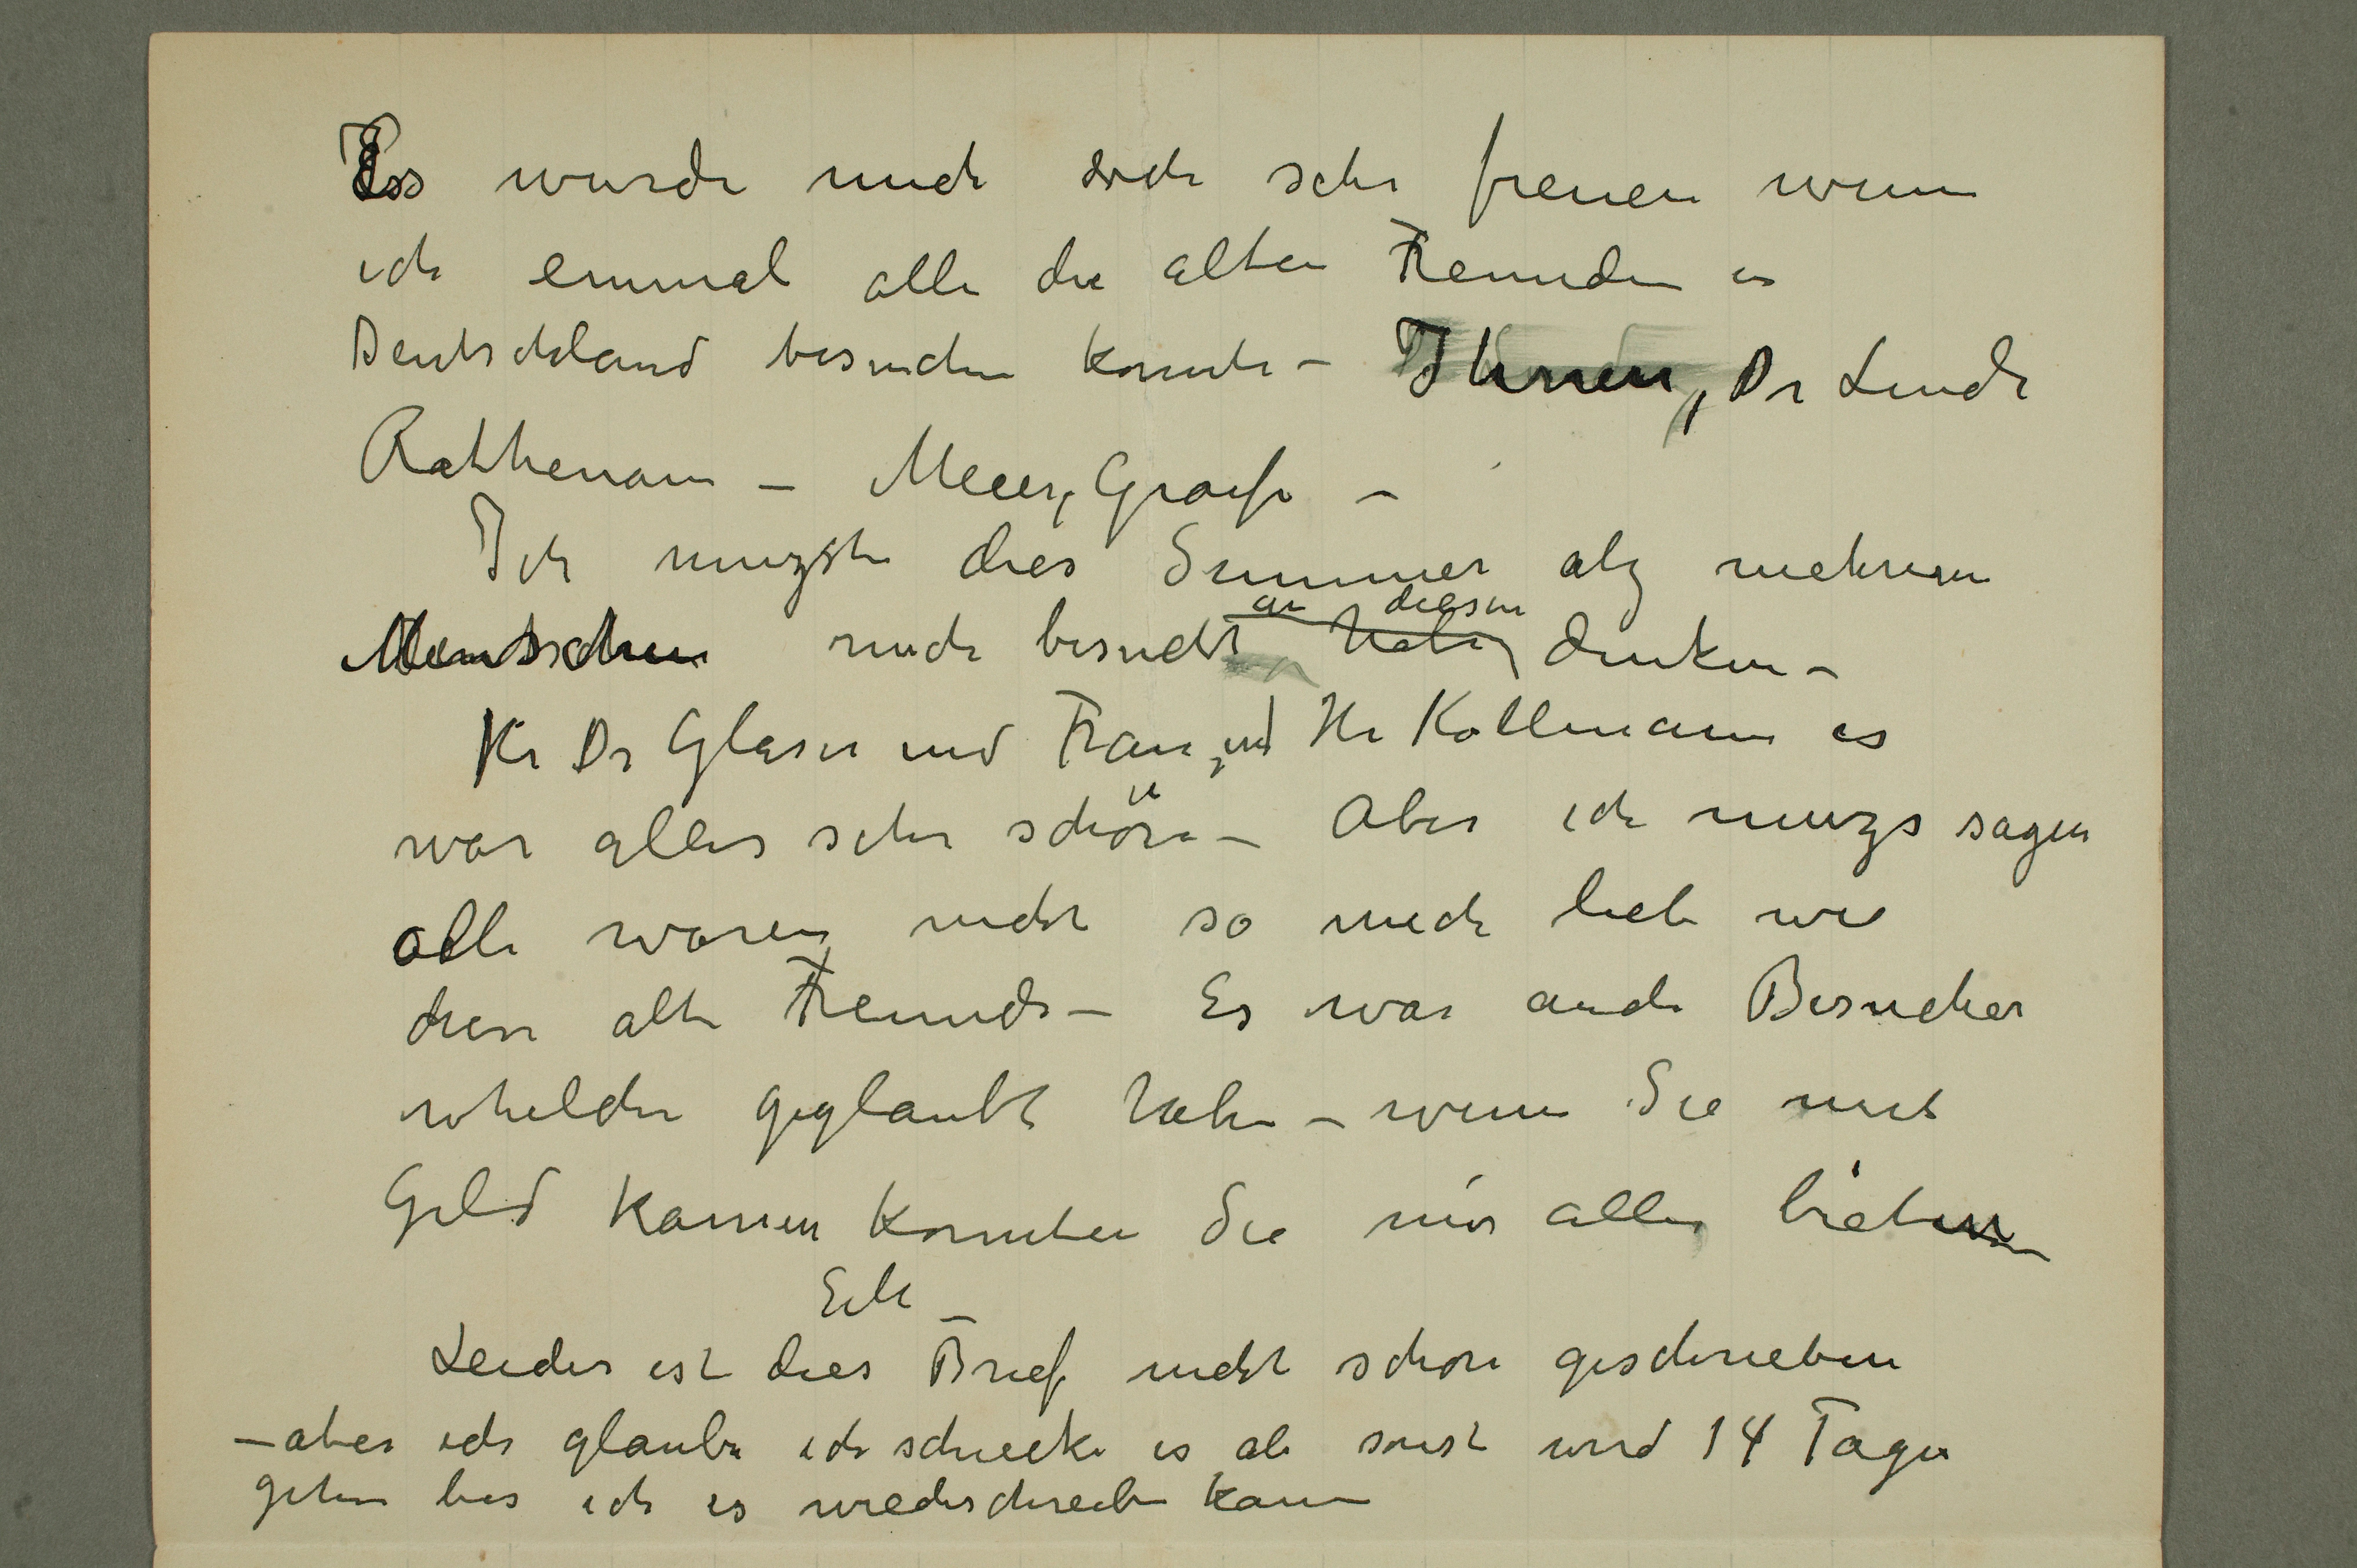 Es wurde mich doch sehr freuen wenn
ich einmal alle die alten Freunden in
Deutschland besuchen konnte – Ihnen, Dr Linde
Rathenau – Meier, Graefe –
Ich muzste dies Summer alz mehreren
Mentschen mich besucht habe, an diesen denken –
Hr Dr Glaser und Frau, und Hr Kollmann es
war alles sehr schön – Aber ich muzs sagen
alle waren nicht so mich lieb wie
diese alte Freunde – Es war auch Besucher
whelche geglaubt habe – wenn Sie mit
Geld kamen konnten Sie mir alles bieten
Leider ist dies Brief nicht schön geschrieben
– aber ich glaube ich schiecke es ab sonst wird 14 Tage
gehen bis ich es wiederschreiben kann